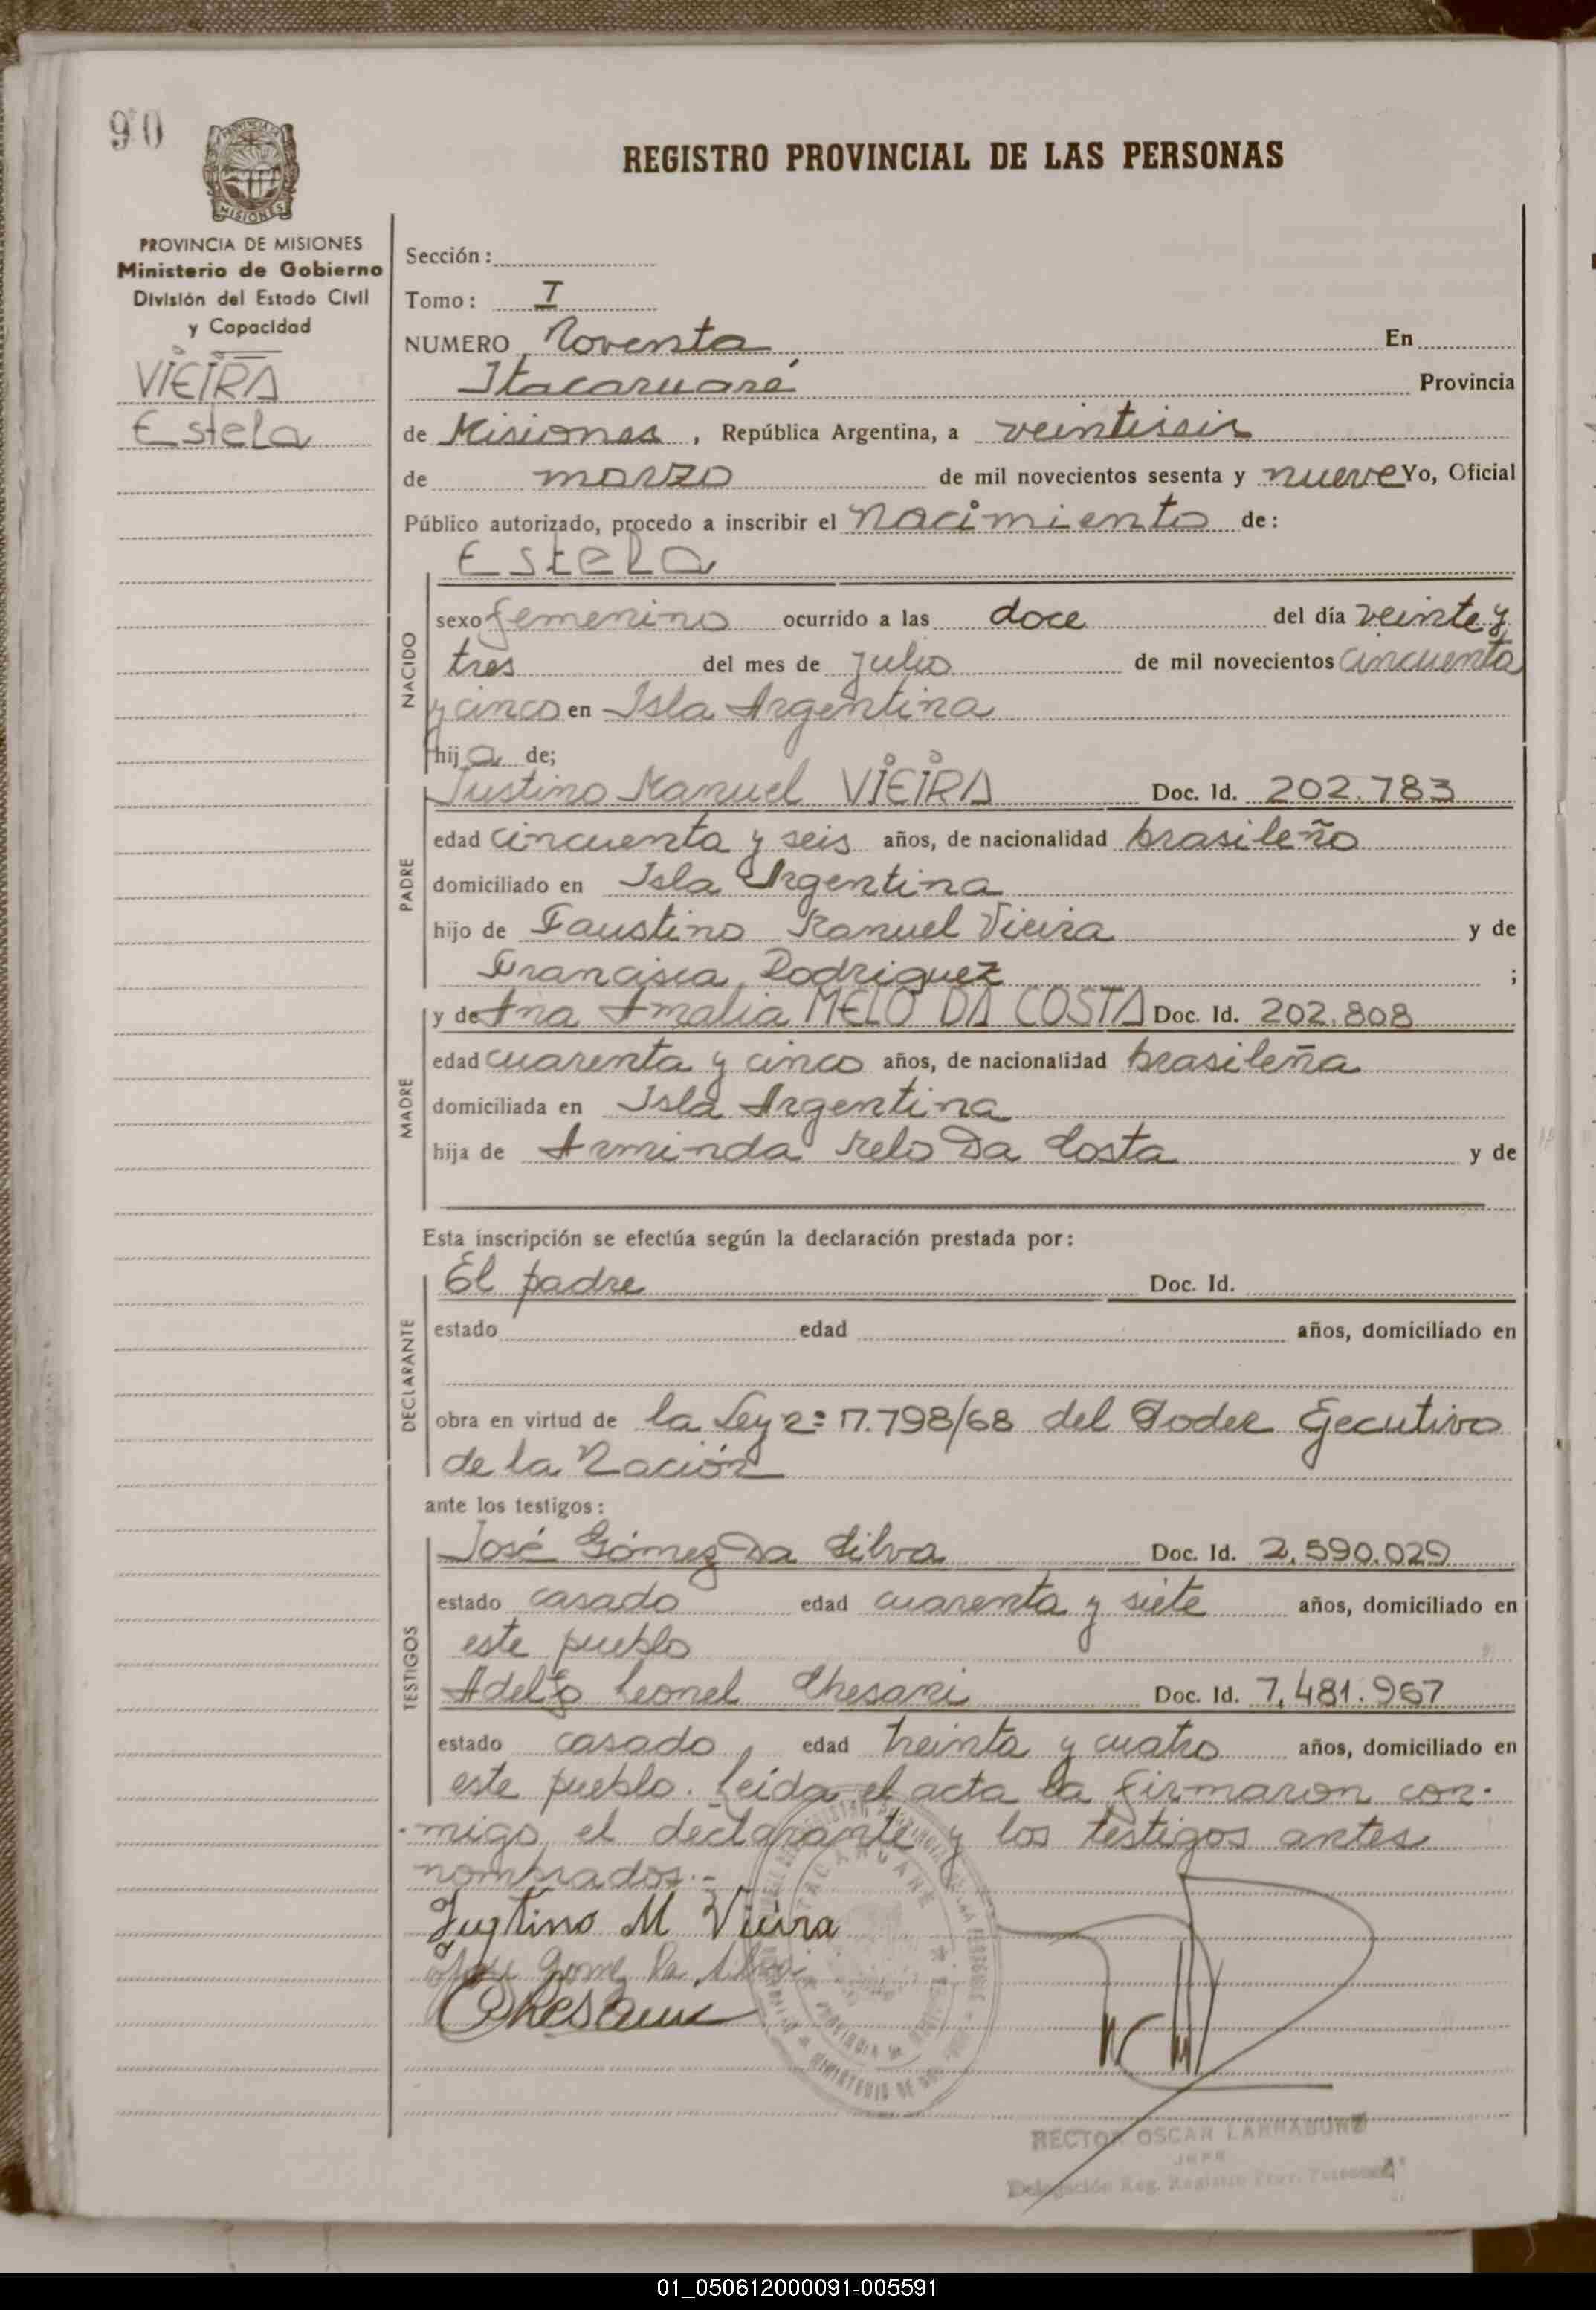 90
MISIONES
REGISTRO PROVINCIAL DE LAS PERSONAS
PROVINCIA DE MISIONES
Ministerio de Gobierno
División del Estado Civil
y Capacidad
VIEIRA
Estela
Sección:
Tomo: I
NUMERO Noventa En
Itacaruaré Provincia
de Misiones, República Argentina, a veintiseis
de marzo de mil novecientos sesenta y nueve Yo, Oficial
Público autorizado, procedo a inscribir el nacimiento de:
Estela
NACIDO
sexo femenino ocurrido a las doce del día veinte y
tres del mes de julio de mil novecientos cincuenta
y cinco en Isla Argentina
hij a de;
PADRE
Justino Manuel VIEIRA Doc. Id. 202.783
edad cincuenta y seis años, de nacionalidad brasileño
domiciliado en Isla Argentina
hijo de Faustino Manuel Vieira y de
Francisca Rodriguez ;
MADRE
y de Ana Amalia MELO DA COSTA Doc. Id. 202.808
edad cuarenta y cinco años, de nacionalidad brasileña
domiciliada en Isla Argentina
hija de Arminda Melo Da Costa y de
Esta inscripción se efectúa según la declaración prestada por:
DECLARANTE
El padre Doc. Id.
estado edad años, domiciliado en
obra en virtud de la Ley n= 17.798/68 del Poder Ejecutivo
de la Nación
ante los testigos:
TESTIGOS
José Gómez Da Silva Doc. Id. 2,590.029
estado casado edad cuarenta y siete años, domiciliado en
este pueblo
Adelfo Leonel Chesani Doc. Id. 7,481.967
estado casado, edad treinta y cuatro años, domiciliado en
este pueblo. Leída el acta la firmaron con-
-migo, el declarante y los testigos antes
nombrados.-
Justino M Vieira
Jose Gomez Da Silva
Chesani
ITACARUARE
MINISTERIO DE
HECTOR OSCAR LARRABURE
JEFE
Delegación Reg. Registro Prov. Personas
01_050612000091-005591